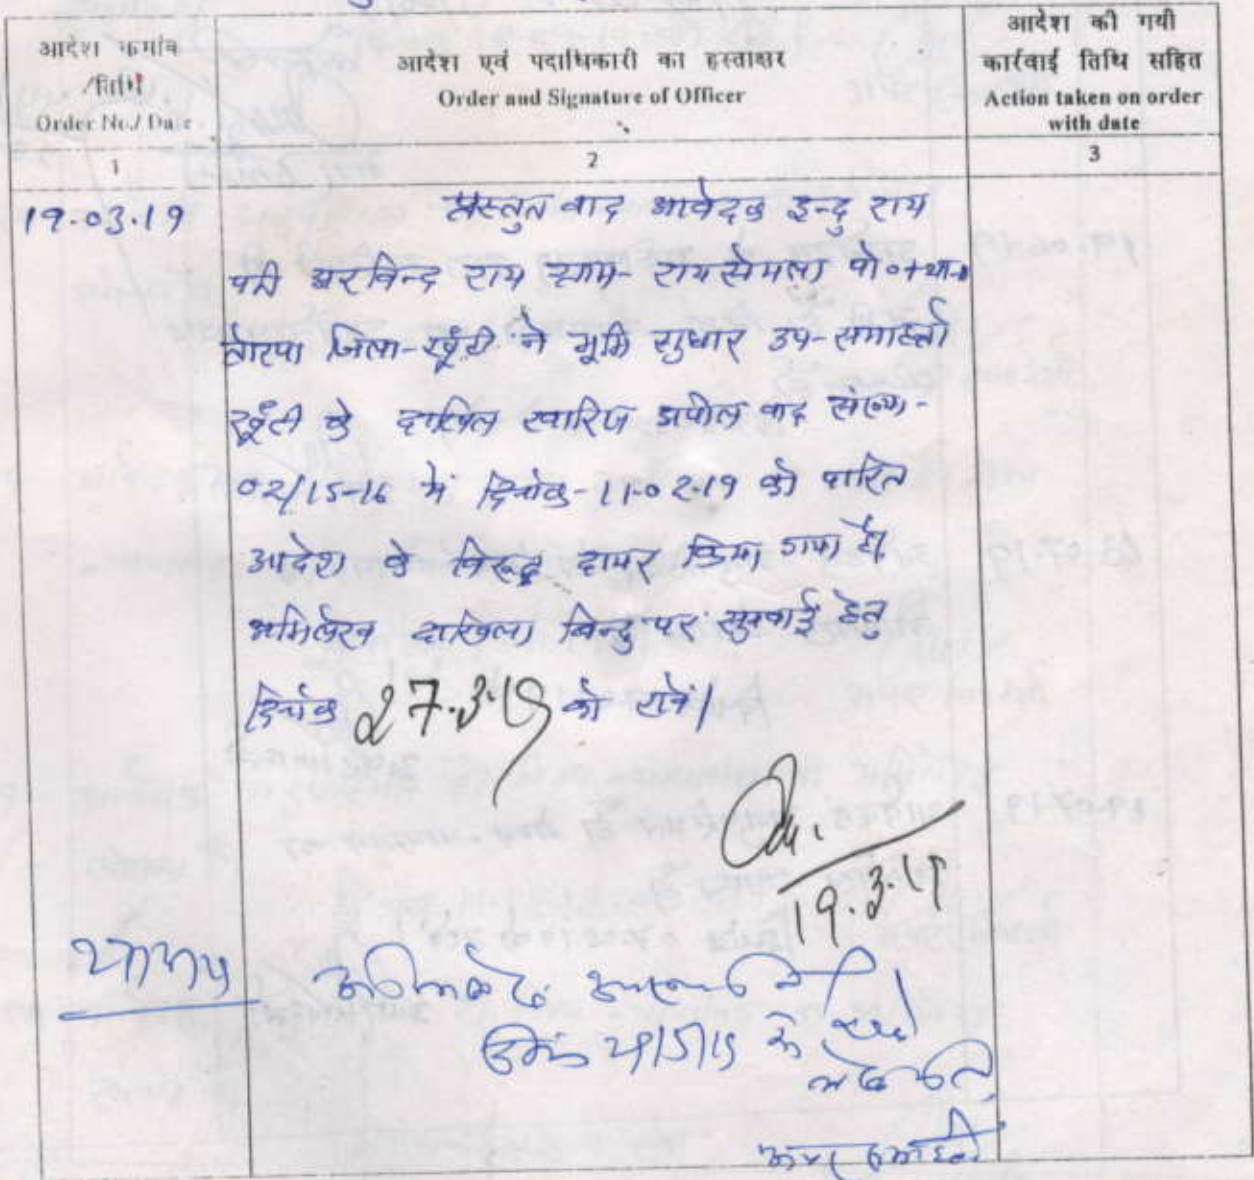 आदेश क्रमांक
/तिथि
Order No./ Date
आदेश एवं पदाधिकारी का हस्ताक्षर
Order and Signature of Officer
आदेश की गयी
कार्रवाई तिथि सहित
Action taken on order
with date
1
2
3
19.03.19
प्रस्तुत वाद आवेदक इन्दु राय
पति अरविन्द राय ग्राम- रायसेमला पो०+था०
तोरपा जिला-खूँटी ने भूमि सुधार उप-समाहर्ता
खूँटी के दाखिल खारिज अपील वाद संख्या-
02/15-16 में दिनांक-11.02.19 को पारित
आदेश के विरूद्ध दायर किया गया है।
अभिलेख दाखिला बिन्दु पर सुनवाई हेतु
दिनांक 27.3.19 को रखें।
19.3.19